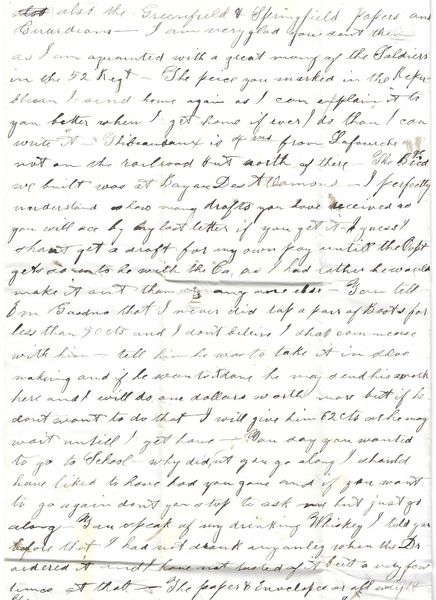 also the Greenfield & Springfield Papers and
Guardians — I am very glad you sent them
as I am aquainted with a great many of the Soldiers
in the 52 Regt — The peice you marked in the Repu
blican I send home again as I can explain it to
you better when I get home if ever I do than I can
write it — Thibeaudaux is 4 ms from Lafourche
not on the railroad but north of there — The Bridge
we built was at Bayou Des Allamons — I perfectly
understand how many drafts you have received as
you will see by my last letter if you get it — I guess I
shant get a draft for my own pay untill the Capt
gets so as to be with the Co, as I had rather he would
make it out than any one else — You tell
Em that I never did tap a pair of Boots for
less than 70 cts and I dont beleive I shal commence
with him — tell him he was to take it in shoe
making and if he wants done he may send his work
here and I will do one dollars worth more but if he
dont want to do that I will give him 62 cts or he may
wait untill I get home — You say you wanted
to go to School — why didnt you go along I should
have liked to have had you gone and if you want
to go again dont you stop to ask me but just go
along — You speak of my drinking Whiskey I told you
before that I had not drank any only when the Dr
ordered it and I have not tasted of it but a very few
times at that — The paper & Envelopes are all right